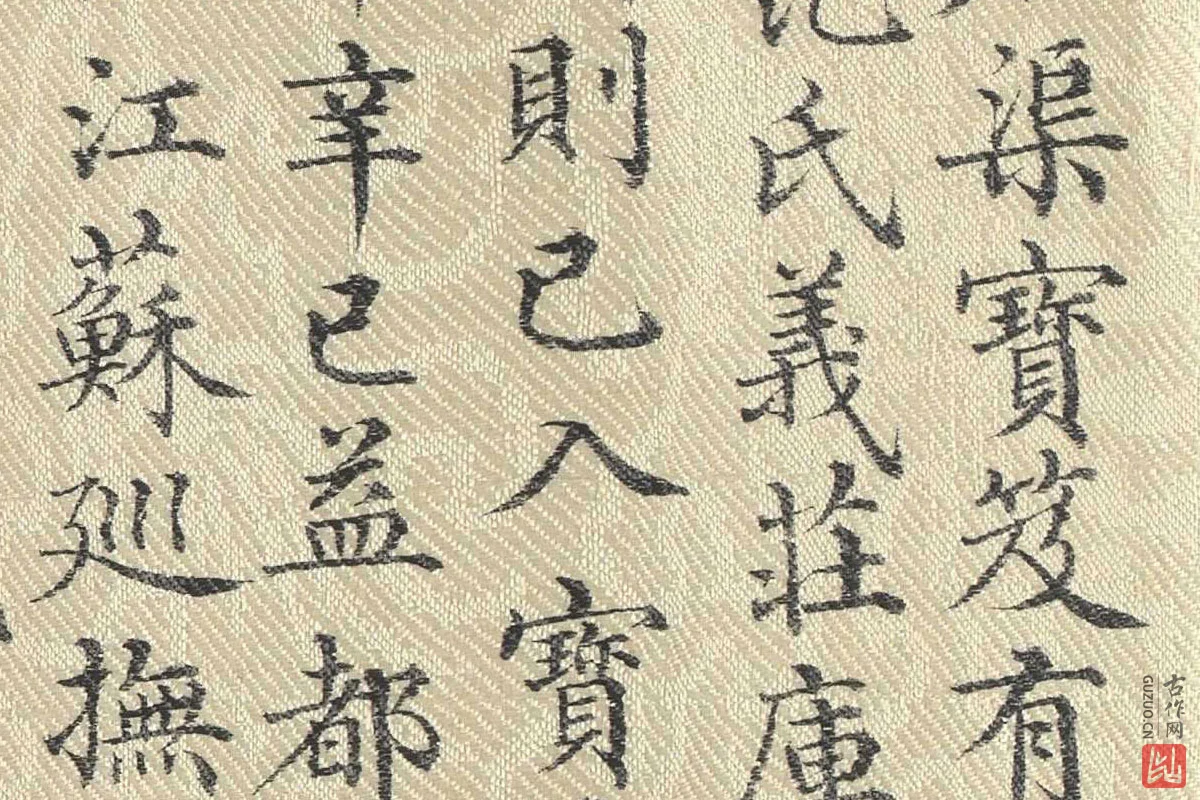 渠寶笈有
氏義莊庫
則已入寶
辛巳益都
江蘇廵撫
古作网
GUZUO.CN